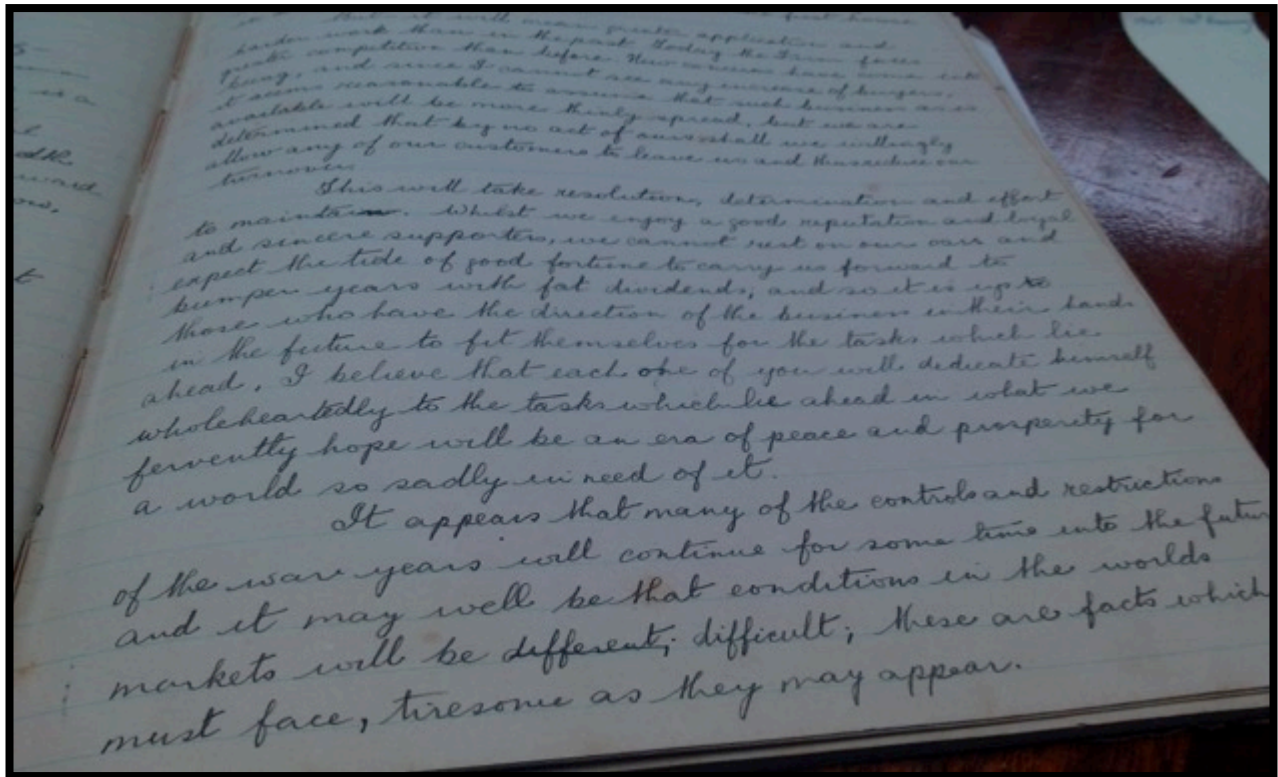 But it will mean greater application and
harder work than in the past. Today the Firm faces
greater competition than before. New concerns have come into
being, and since I cannot see any increase of buyers,
it seems reasonable to assume that such business as is
available will be more thinly spread, but we are
determined that by no act of ours shall we willingly
allow any of our customers to leave us and thus reduce our
turnover.
This will take resolution, determination and effort
to maintain. Whilst we enjoy a good reputation and loyal
and sincere supporters, we cannot rest on our oars and
expect the tide of good fortune to carry us forward to
bumper years with fat dividends, and so it is up to
those who have the direction of the business in their hands
in the future to fit themselves for the tasks which lie
ahead. I believe that each one of you will dedicate himself
wholeheartedly to the tasks which lie ahead in what we
fervently hope will be an era of peace and prosperity for
a world so sadly in need of it.
It appears that many of the controls and restrictions
of the war years will continue for some time into the futur
and it may well be that conditions in the worlds
markets will be different; difficult; these are facts which
must face, tiresome as they may appear.